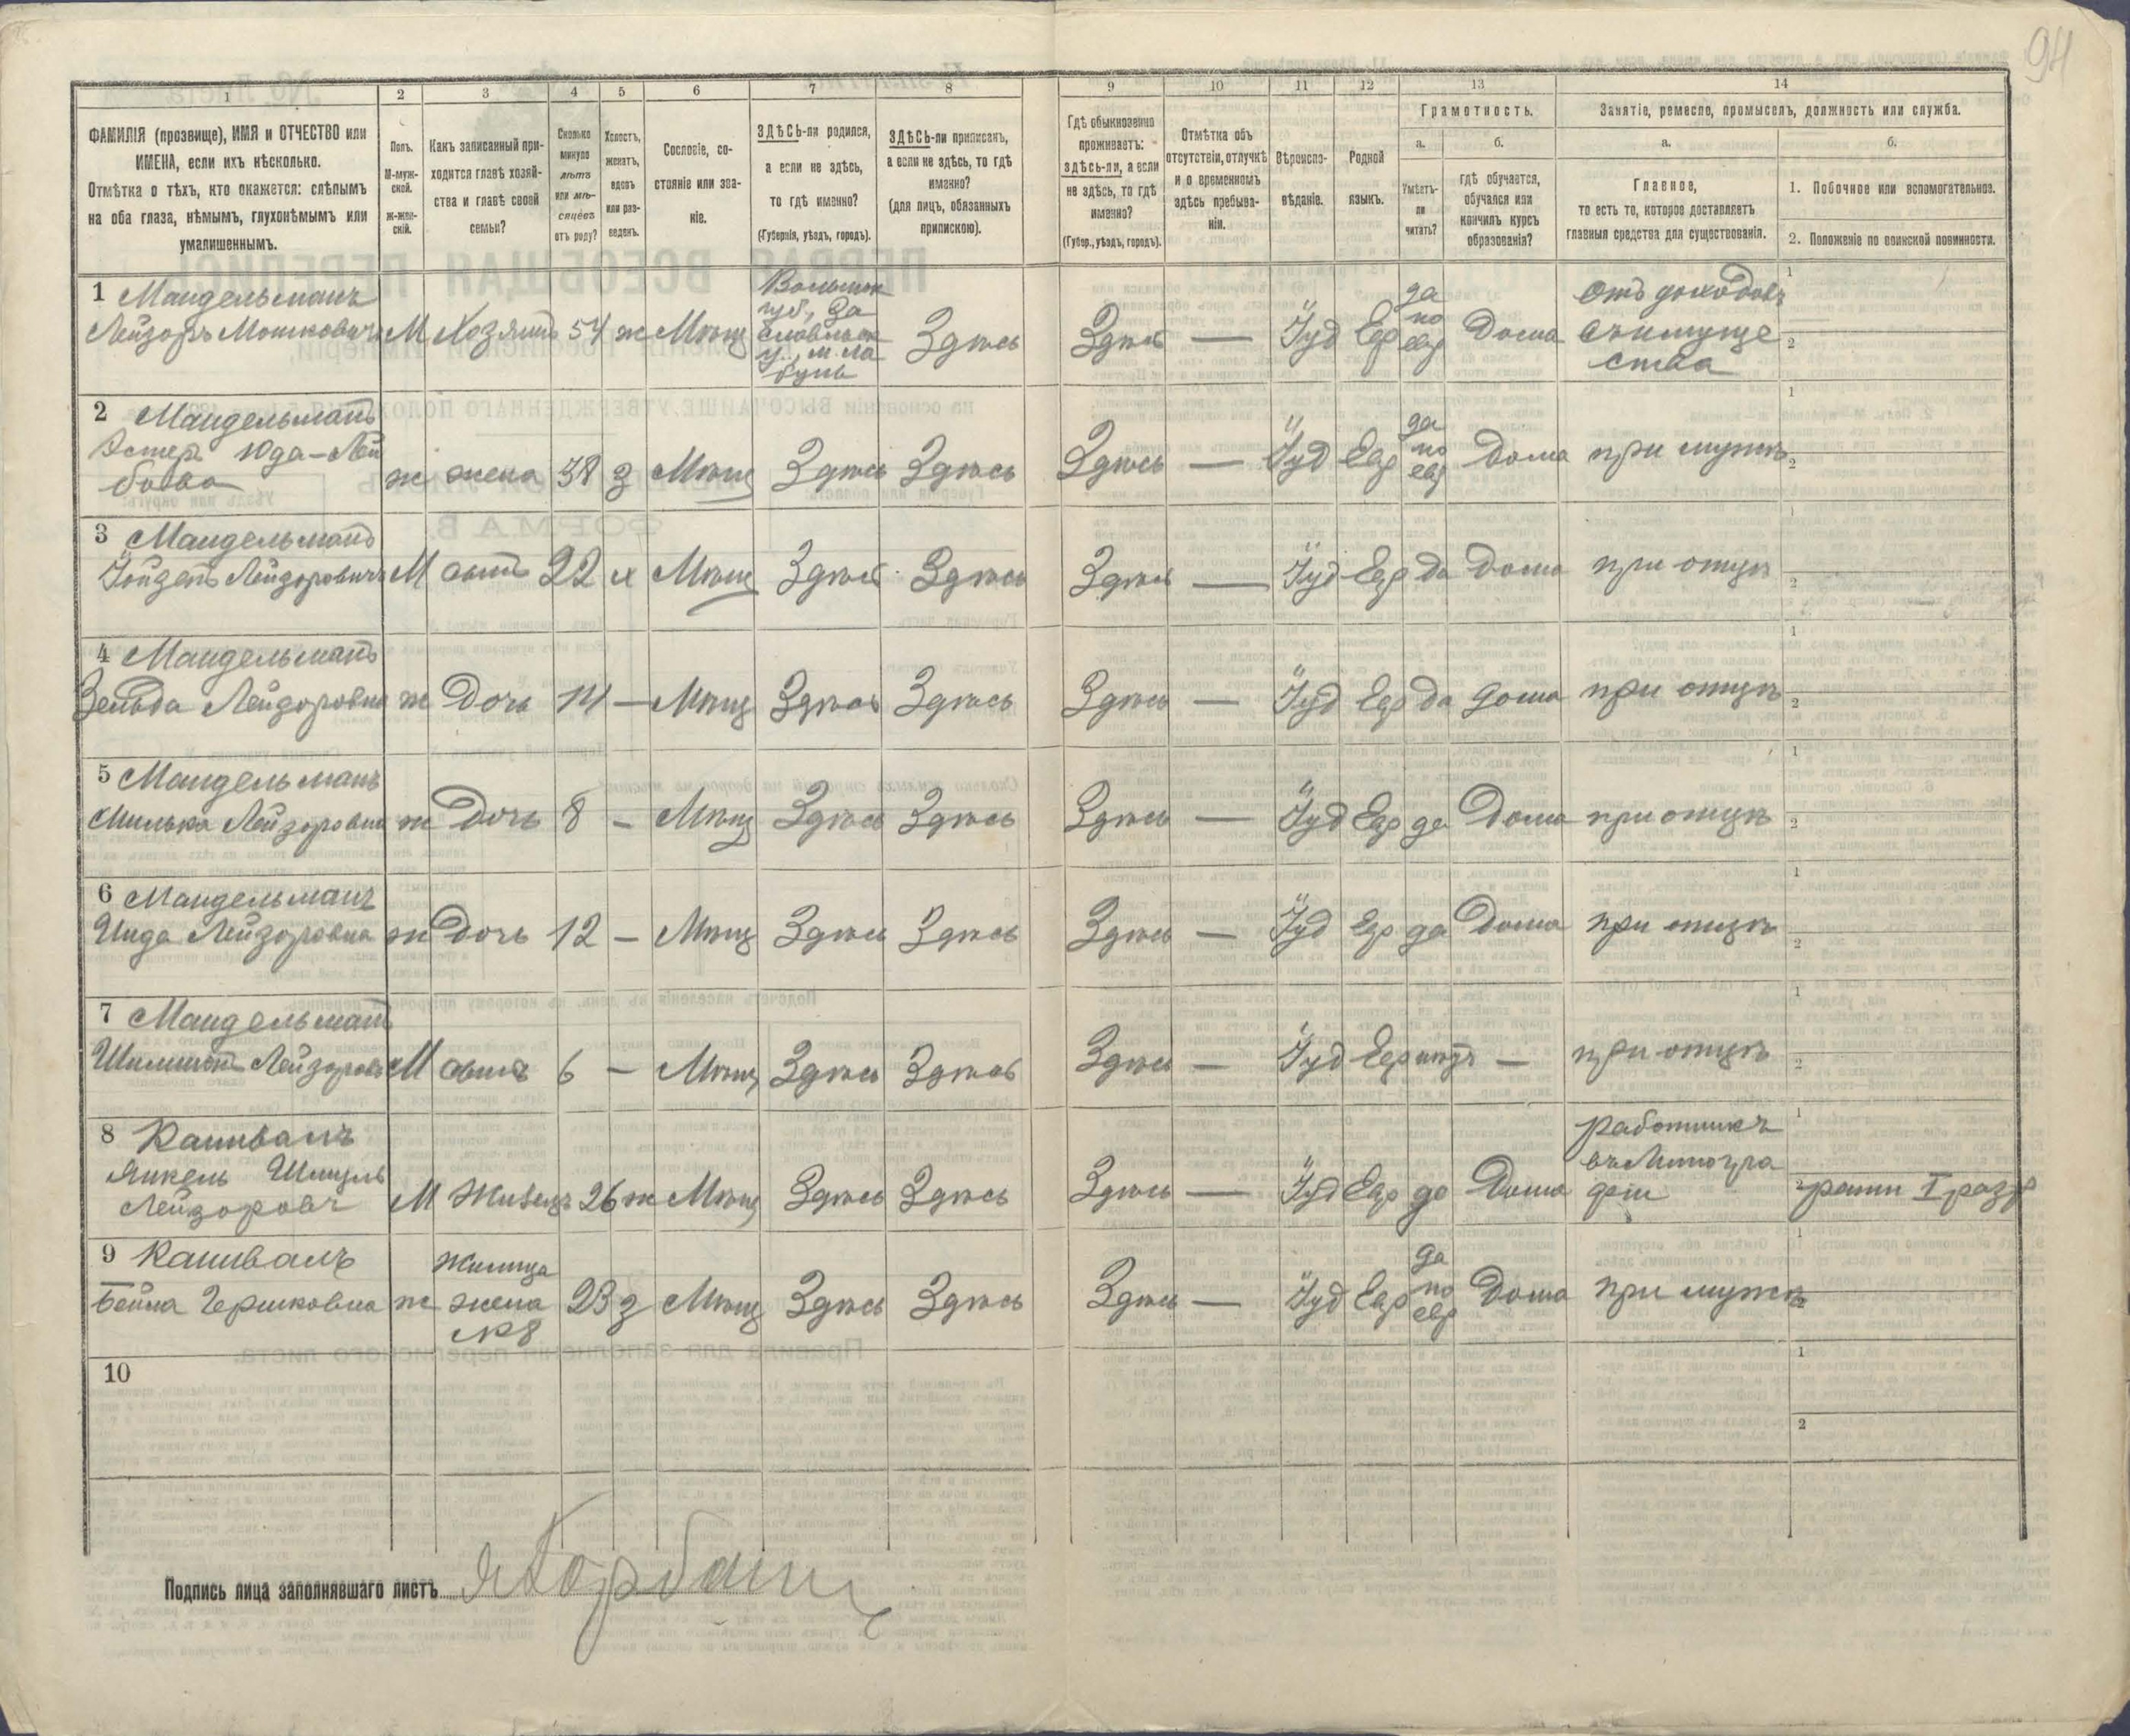 94
1
2
3
4
5
6
7
8
9
10
11
12
13
14
ФАМИЛІЯ (прозвище), ИМЯ и ОТЧЕСТВО или
ИМЕНА, если ихъ нѣсколько.
Отмѣтка о тѣхъ, кто окажется: слѣпымъ
на оба глаза, нѣмымъ, глухонѣмымъ или
умалишеннымъ.
Полъ.
М-муж-
ской.
ж-жен-
скій.
Какъ записанный при-
ходится главѣ хозяй-
ства и главѣ своей
семьи?
Сколько
минуло
лѣтъ
или мѣ-
сяцевъ
отъ роду?
Холостъ,
женатъ,
вдовъ
или раз-
веденъ.
Сословіе, со-
стояніе или зва-
ніе.
ЗДѢСЬ-ли родился,
а если не здѣсь,
то гдѣ именно?
(Губернія, уѣздъ, городъ).
ЗДѢСЬ-ли приписанъ,
а если не здѣсь, то гдѣ
именно?
(для лицъ, обязанныхъ
припискою).
Гдѣ обыкновенно
проживаетъ:
здѣсь-ли, а если
не здѣсь, то гдѣ
именно?
(Губер., уѣздъ, городъ).
Отмѣтка объ
отсутствіи, отлучкѣ
и о временномъ
здѣсь пребыва-
ніи.
Вѣроиспо-
вѣданіе.
Родной
языкъ.
Грамотность.
а.
Умѣетъ-
ли
читать?
б.
гдѣ обучается,
обучался или
кончилъ курсъ
образованія?
Занятіе, ремесло, промыселъ, должность или служба.
а.
Главное,
то есть то, которое доставляетъ
главныя средства для существованія.
б.
1. Побочное или вспомогательное.
2. Положеніе по воинской повинности.
1 Мандельманъ
Лейзоръ Мошковичъ М Хозяинъ 54 ж Мѣщ
Волынск
губ, За
славльск
у., м. Ла
бунь
Здѣсь Здѣсь — Іуд Евр
да
по
евр
Дома
Отъ доходовъ
съ имуще
ства
2 Мандельманъ
Эстер Юда-Лей
бова ж жена 38 з Мѣщ Здѣсь Здѣсь Здѣсь — Іуд Евр
да
по
евр
Дома при мужѣ
3 Мандельманъ
Лейзоровичъ М сынъ 22 х Мѣщ Здѣсь Здѣсь Здѣсь — Іуд Евр да Дома при отцѣ
4 Мандельманъ
Зельда Лейзоровна ж Дочь 14 — Мѣщ Здѣсь Здѣсь Здѣсь — Іуд Евр да Дома при отцѣ
5 Мандельманъ
Милька Лейзоровна ж Дочь 8 — Мѣщ Здѣсь Здѣсь Здѣсь — Іуд Евр да Дома при отцѣ
6 Мандельманъ
Лейзоровна ж Дочь 12 — Мѣщ Здѣсь Здѣсь Здѣсь — Іуд Евр да Дома при отцѣ
7 Мандельманъ
М сынъ 6 — Мѣщ Здѣсь Здѣсь Здѣсь — Іуд Евр нѣтъ — при отцѣ
8
Янкель Шмуль
М Жилецъ 26 ж Мѣщ Здѣсь Здѣсь Здѣсь — Іуд Евр да Дома
работникъ
2 ратн I разр
9
Бейла Гершковна ж
жилица
жена
№8
23 з Мѣщ Здѣсь Здѣсь Здѣсь — Іуд Евр
да
по
евр
Дома при мужѣ
10
1
2
Подпись лица заполнявшаго листъ